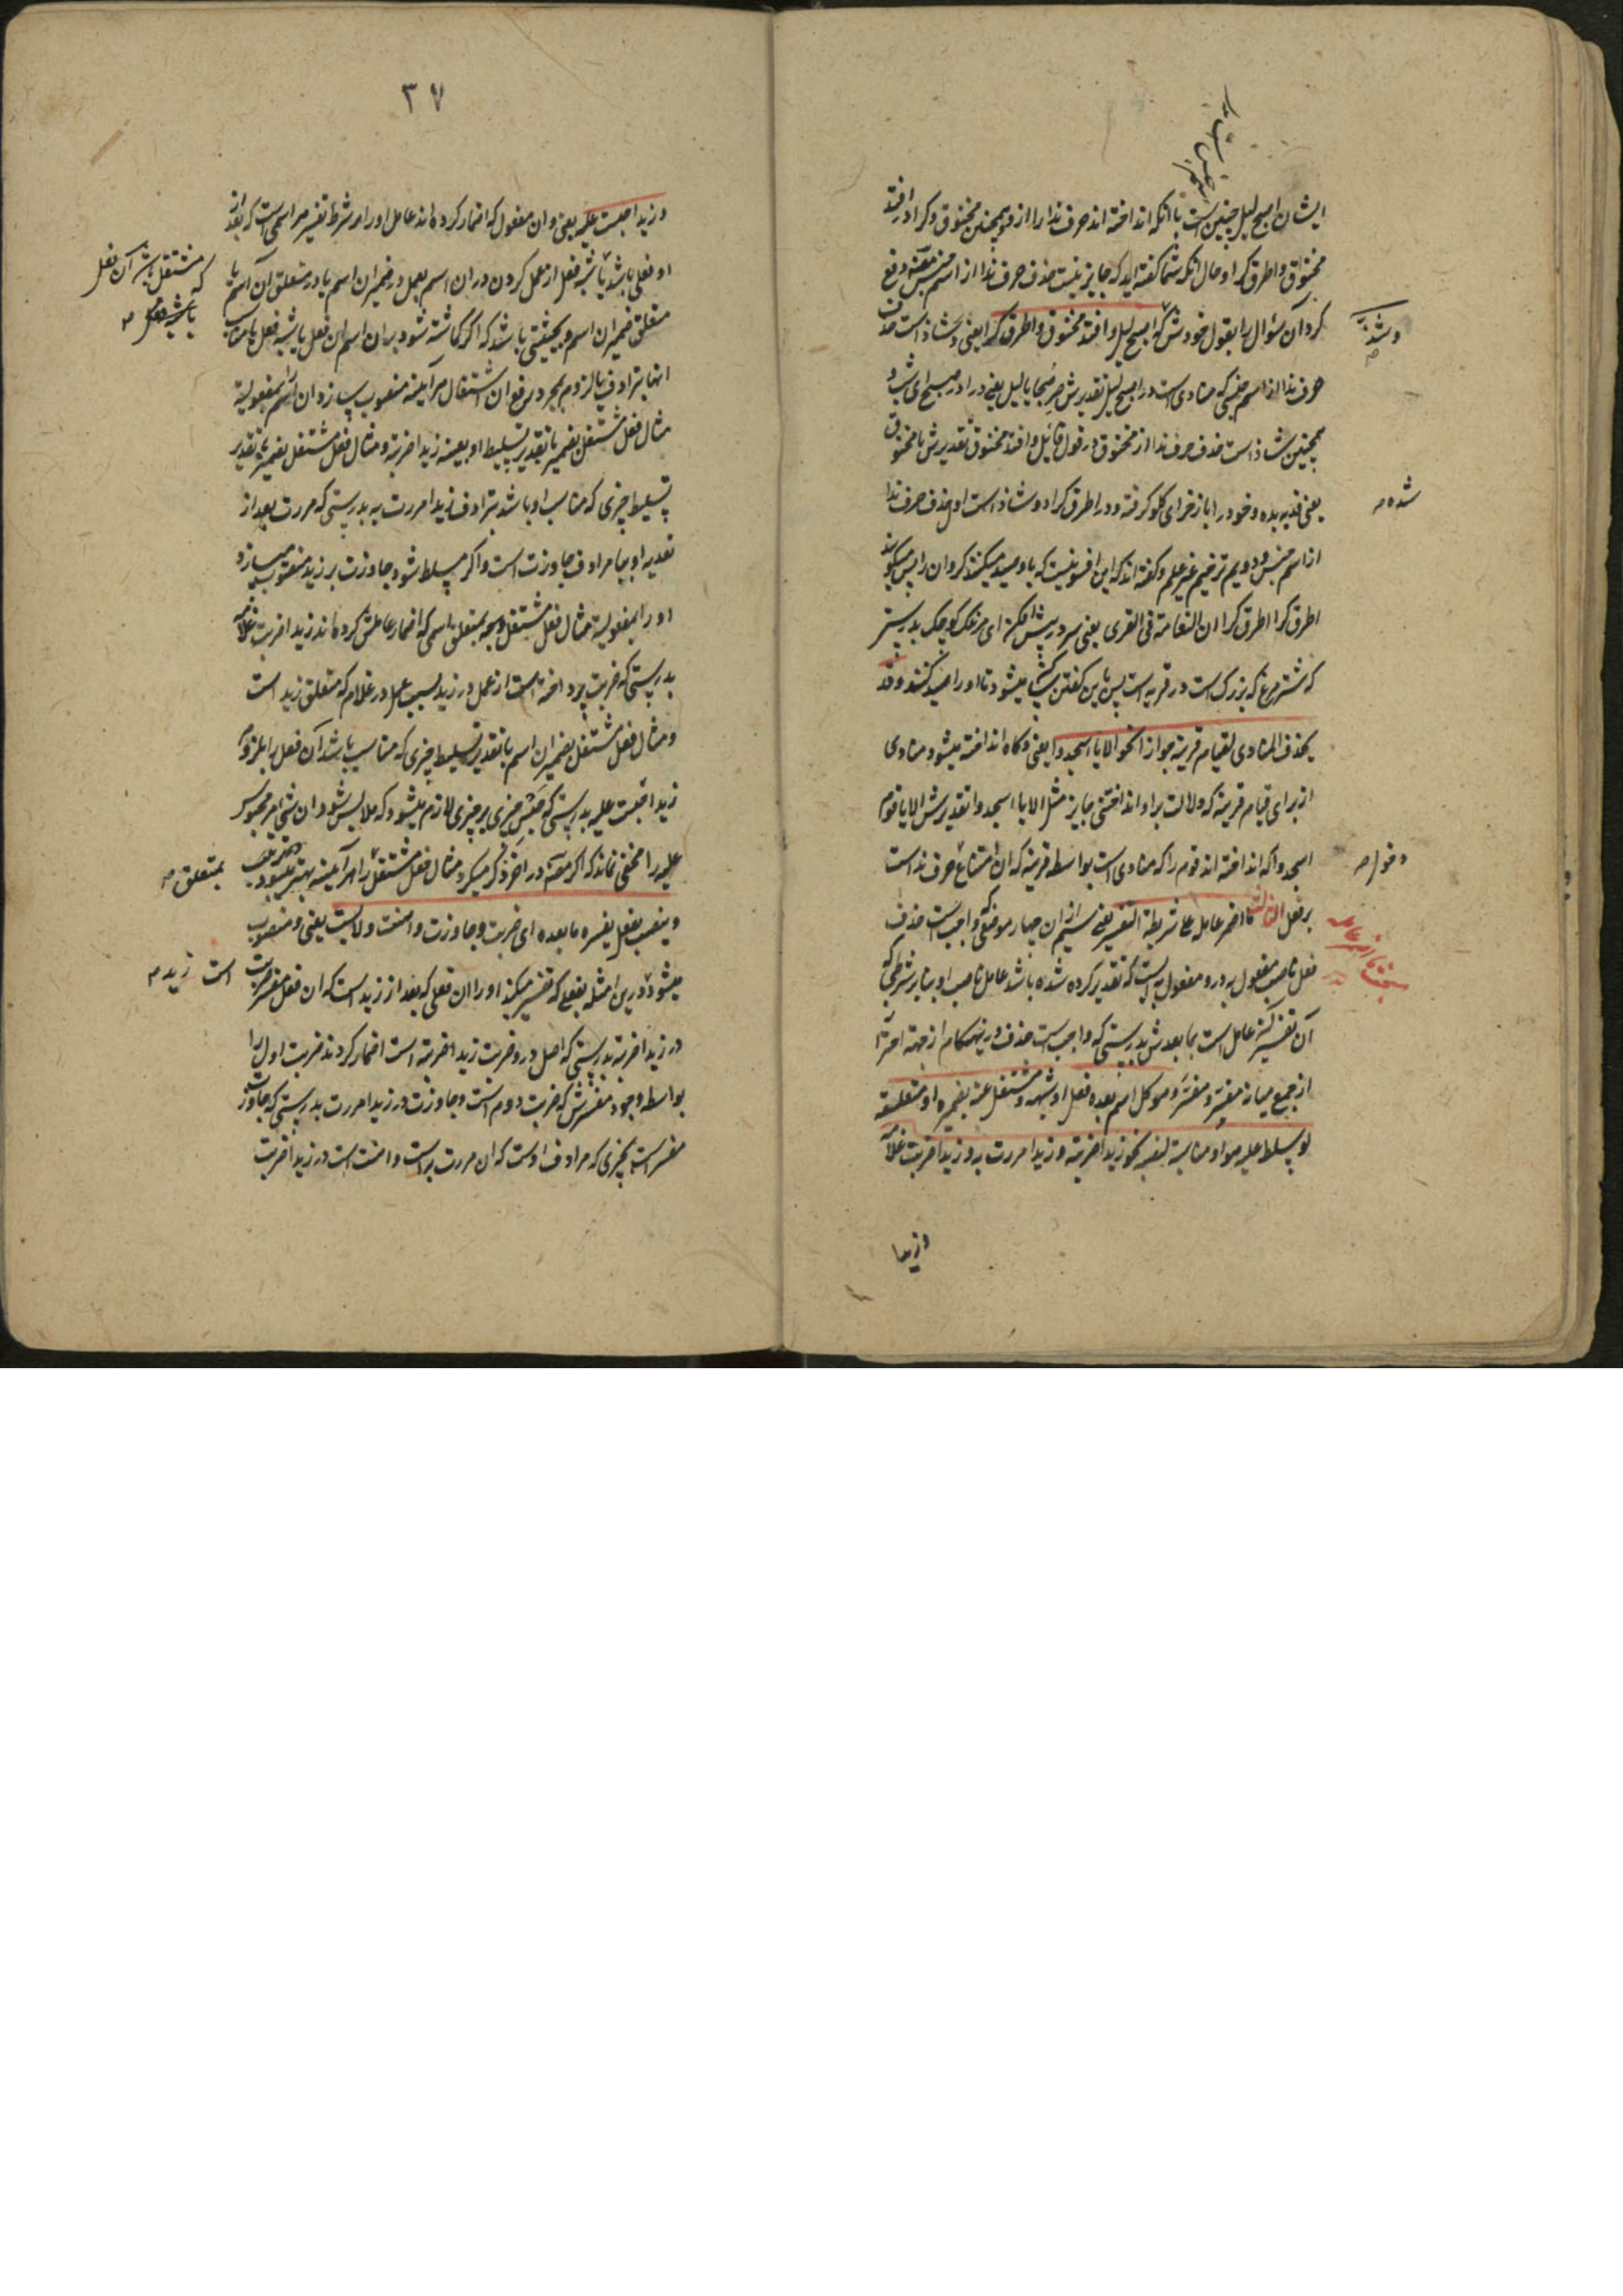 ایشان اصبح لیل چنین است با آنکه انداخته اند حرف ندا را ازو و همچنین مخنوق و کرا در افتد
مخنوق و اطرق کرا و حال آنکه شما گفته اید که جایز نیست حذف حرف ندا از اسم جنس مصنف دفع
کرد آن سؤال را بقول خودش که اصبح لیل و افتد مخنوق و اطرق کرا یعنی و شاذ است حذف
حرف ندا از اسم جنسی که منادی است در اصبح لیل تقدیرش صر صبحا یا لیل یعنی در ا در صبح ای شب و
همچنین شاذ است حذف حرف ندا از مخنوق در قول قائل و افتد مخنوق تقدیرش یا مخنوق
یعنی فدیه بده و خود را باز خر ای گلو گرفته و در اطرق کرا دو شاذ است اول حذف حرف ندا
از اسم جنس و دویم ترخیم غیر علم و گفته اند که این افسونیست که باو صید میکنند کروان را پس میگویند
اطرق کرا اطرق کرا ان النعامة فی القری یعنی سر در پیش افکن ای مرغک کوچک بدرستی
که شتر مرغ که بزرگ است در قریه است پس باین گفتن میشود تا او را صید کنند و قد
یحذف المنادی لقیام قرینة جوازا نحو الا یا اسجدوا یعنی و گاه انداخته میشود منادی
از برای قیام قرینه که دلالت بر او انداختنی جایز مثل الا یا اسجدوا تقدیرش الا یا قوم
اسجدوا که انداخته اند قوم را که منادی است بواسطه قرینه که ان امتناع حرف ندا است
بر فعل الثالث ما اضمر عامله علی شریطة التفسیر یعنی سیم از ان چهار موضعی که واجبست حذف
فعل ناصب مفعول به درو مفعول به ایست که تقدیر کرده شده باشد عامل ناصب او بنابر شرطی که
آن تفسیر عامل است بما بعدش بدرستی که واجب است حذف درینهنگام از جهة احتراز
از جمع میانه مفسِّر و مفسَّر و هو کل اسم بعده فعل او شبهه مشتغل عنه بضمیره او متعلقه
لو سلط علیه هو او مناسبه لنصبه نحو زیدا ضربته و زیدا مررت به و زیدا ضربت غلامه
شده
دخول
و زیدا
۳۷
و زیدا حبست علیه یعنی و ان مفعول که اضمار کرده اند عامل او را بر شرط تفسیر هر اسمی است که بعد از
او فعلی باشد یا شبه فعل از عمل کردن در ان اسم بعمل در ضمیر ان اسم یا در متعلق آن اسم یا
که مشتغل باشد آن فعل
یا شبه فعل
متعلق ضمیر ان اسم و بحیثیتی باشد که اگر گماشته شود بر ان اسم ان فعل یا شبه فعل یا مناسب
انها بترادف یا لزوم بمجرد رفع ان اشتغال هر آینه منصوب سازد ان اسم را بمفعولیة
مثال فعل مشتغل بضمیر با تقدیر تسلیط او بعینه زیدا ضربته و مثال فعل مشتغل بضمیر با تقدیر
تسلیط چیزی که مناسب او باشد بترادف زیدا مررت به بدرستی که مررت بعد از
تعدیه او ببا مرادف جاوزت است و اگر مسلط شود جاوزت بر زید منصوب میسازد
او را بمفعولیة مثال فعل مشتغل بمتعلق اسمی که اضمار عاملش کرده اند زیدا ضربت غلامه
بدرستی که ضربت پرداخته است از عمل در زید بسبب عمل در غلام که متعلق زید است
و مثال فعل مشتغل بضمیر ان اسم با تقدیر تسلیط چیزی که مناسب باشد آن فعل را بلزوم
زیدا حبست علیه بدرستی که حبس چیزی بر چیزی لازم میشود که ملابس شود ان شی امر محبوس
علیه را مخفی نماند که اگر مصنف در آخر ذکر میکرد مثال فعل مشتغل را هر آینه بهتر میبود
بمتعلق
و ینصب بفعل یفسره ما بعده ای ضربت و جاوزت و اهنت و لابست یعنی و منصوب
میشود درین امثله بفعلی که تفسیر میکند او را ان فعلی که بعد از زید است که ان فعل مفسر ضربت
است زید
در زیدا ضربته بدرستی که اصل درو ضربت زیدا ضربته است اضمار کردند ضربت اول را
بواسطه وجود مفسرش که ضربت دوم است و جاوزت در زیدا مررت بدرستی که جاوزت
مفسر است بچیزی که مرادف اوست که ان مررت به است و اهنت است در زیدا ضربت